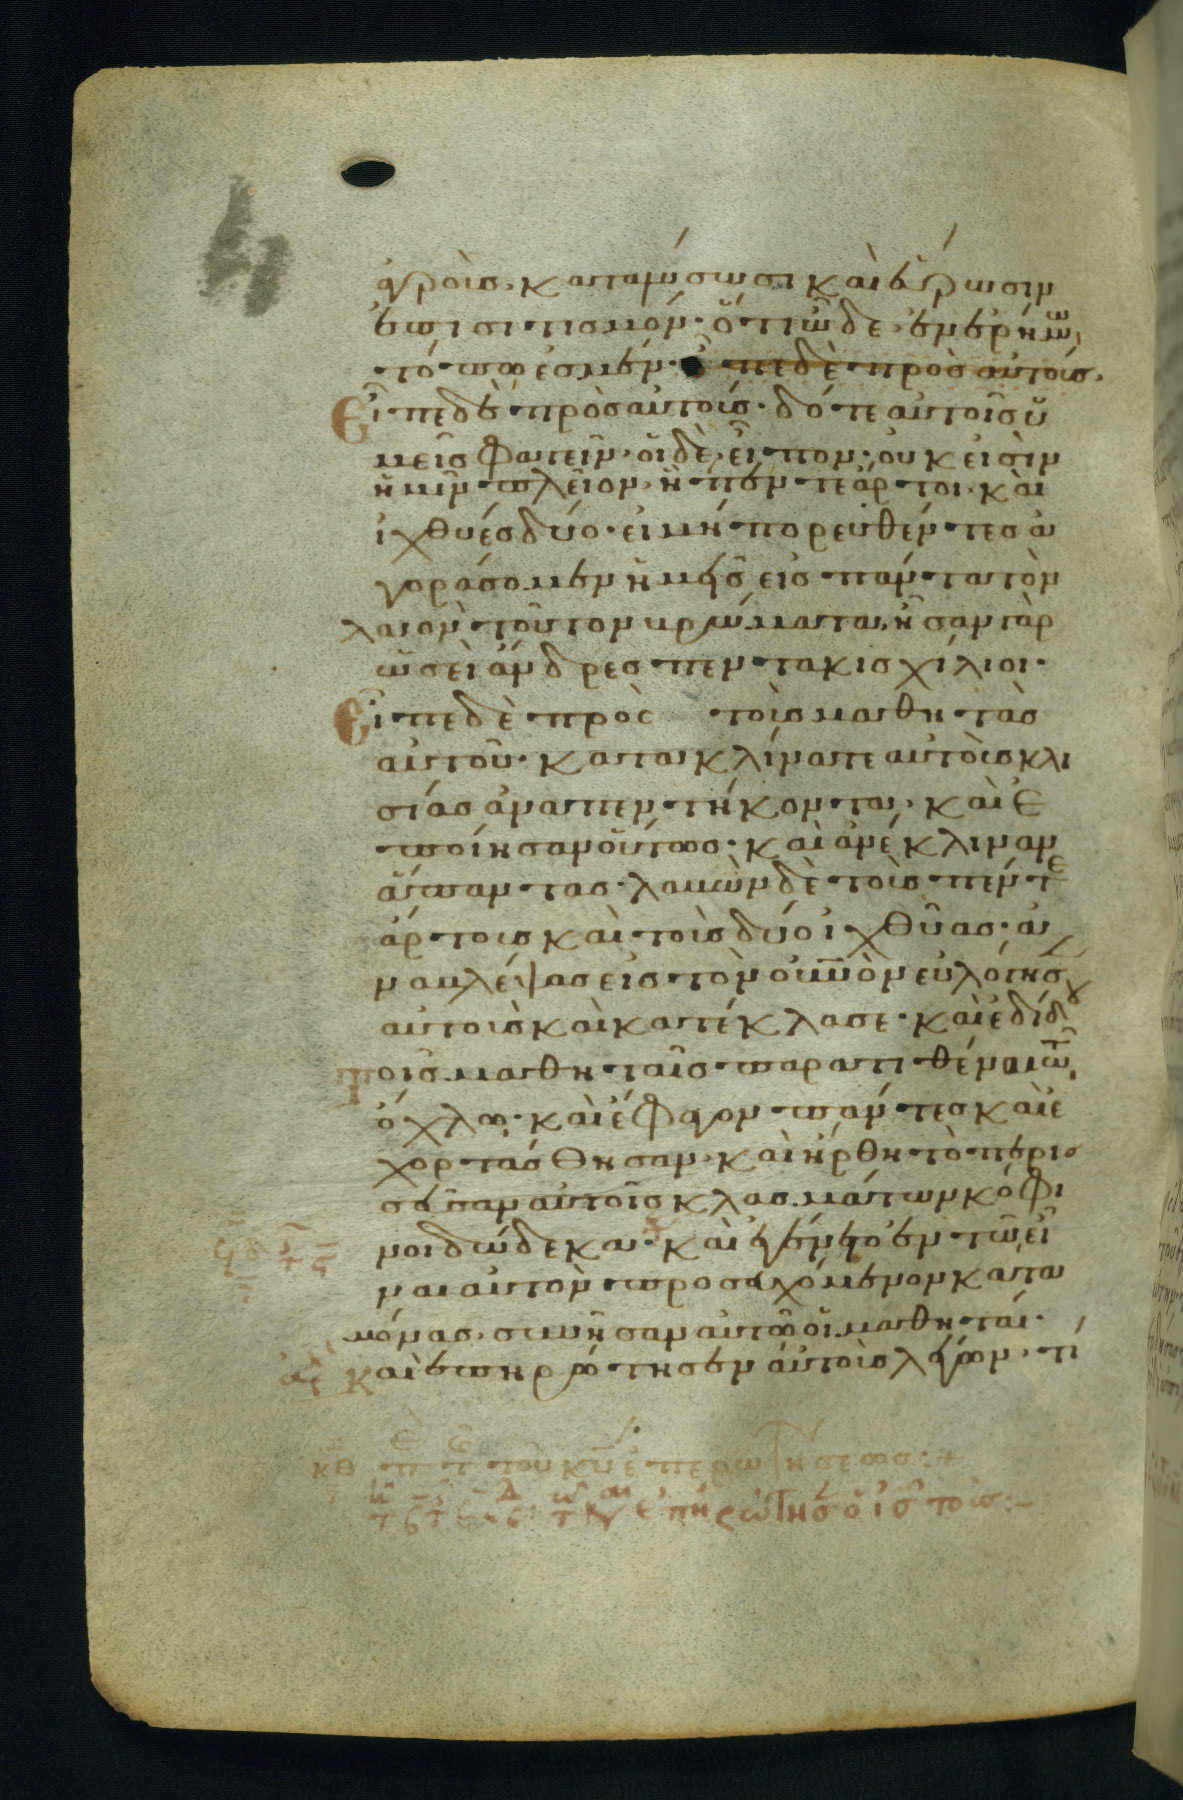 ἀγροὺς, καταλύσωσι καὶ εὕρωσιν
ἐπισιτισμόν· ὅτι ὧδε ἐν ἐρήμω
τόπω ἐσμέν· εἶπε δὲ πρὸς αὐτούς,
Εἶπε δὲ πρὸς αὐτούς· δότε αὐτοῖς ὑ
μεῖς φαγεῖν· οἱ δὲ εἶπον· οὐκ εἰσὶν
ἡμῖν πλεῖον ἢ πέντε ἄρτοι καὶ
ἰχθύες δύο· εἰ μὴ πορευθέντες ἀ
γοράσομεν ἡμεῖς εἰς πάντα τὸν
λαὸν τοῦτον βρώματα, ἦσαν γὰρ
ὡσεὶ ἄνδρες πεντακισχίλιοι·
Εἶπε δὲ πρὸς τοὺς μαθητὰς
αὐτοῦ· κατακλίνατε αὐτοὺς κλι
σίας ἀνὰ πεντήκοντα, καὶ ἐ
ποίησαν οὕτως· καὶ ἀνέκλιναν
ἅπαντας· λαβὼν δὲ τοὺς πέντε
ἄρτους καὶ τοὺς δύο ἰχθύας· ἀ
ναβλέψας εἰς τὸν οὐνὸν εὐλόγησ
αὐτοὺς καὶ κατέκλασε· καὶ ἐδίδου
τοῖς μαθηταῖς παρατιθέναι τῶ
ὄχλω· καὶ ἔφαγον πάντες καὶ ἐ
χορτάσθησαν· καὶ ἤρθη τὸ περισ
σεῦσαν αὐτοῖς κλασμάτων κόφι
νοι δώδεκα· καὶ ἐγένετο ἐν τῶ εἶ
ναι αὐτὸν προσευχόμενον κατα
μόνας, συνῆσαν αὐτῶ οἱ μαθηταί·
καὶ ἐπηρώτησεν αὐτοὺς λέγων· τί
κθ τοῦ κυ ἐπερωτήσεως:+
ἐπηρώτησ ὁ ις τοὺς:-